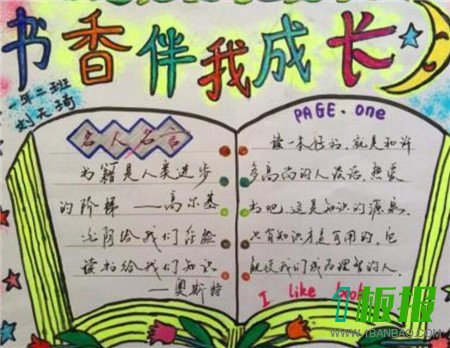 书香伴我成长
一年二班
刘天琦
名人名言
书籍是人类进步
的阶梯——高尔基
光阴给我们经验
读书给我们知识
——奥斯特
PAGE.one
读一本好书,就是和许
多高尚的人谈话.热爱
书吧.这是知识的源泉.
只有知识才是有用的,它
能使我们成为理智的人.
I like book
板报
WWW.1BANBAO.COM